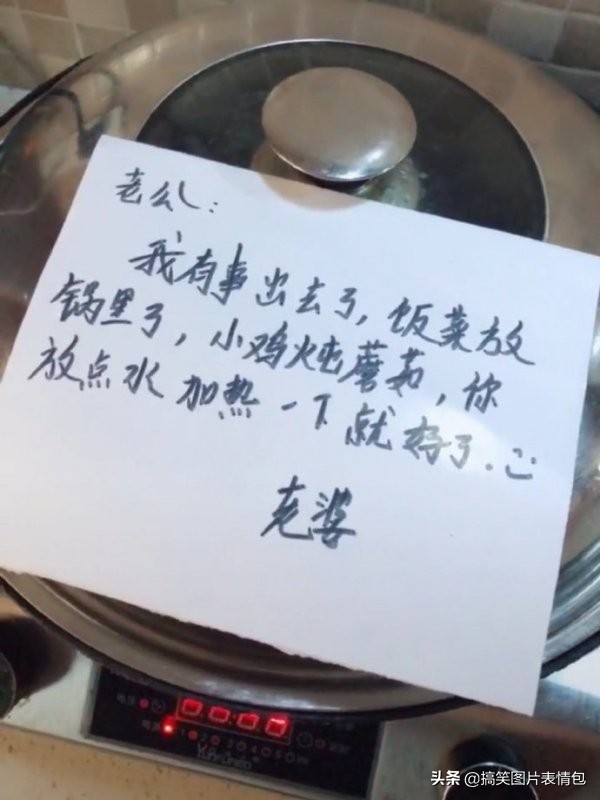 老公:
我有事出去了,饭菜放
锅里了,小鸡炖蘑菇,你
放点水加热一下就好了.
老婆
0:00
头条 @搞笑图片表情包